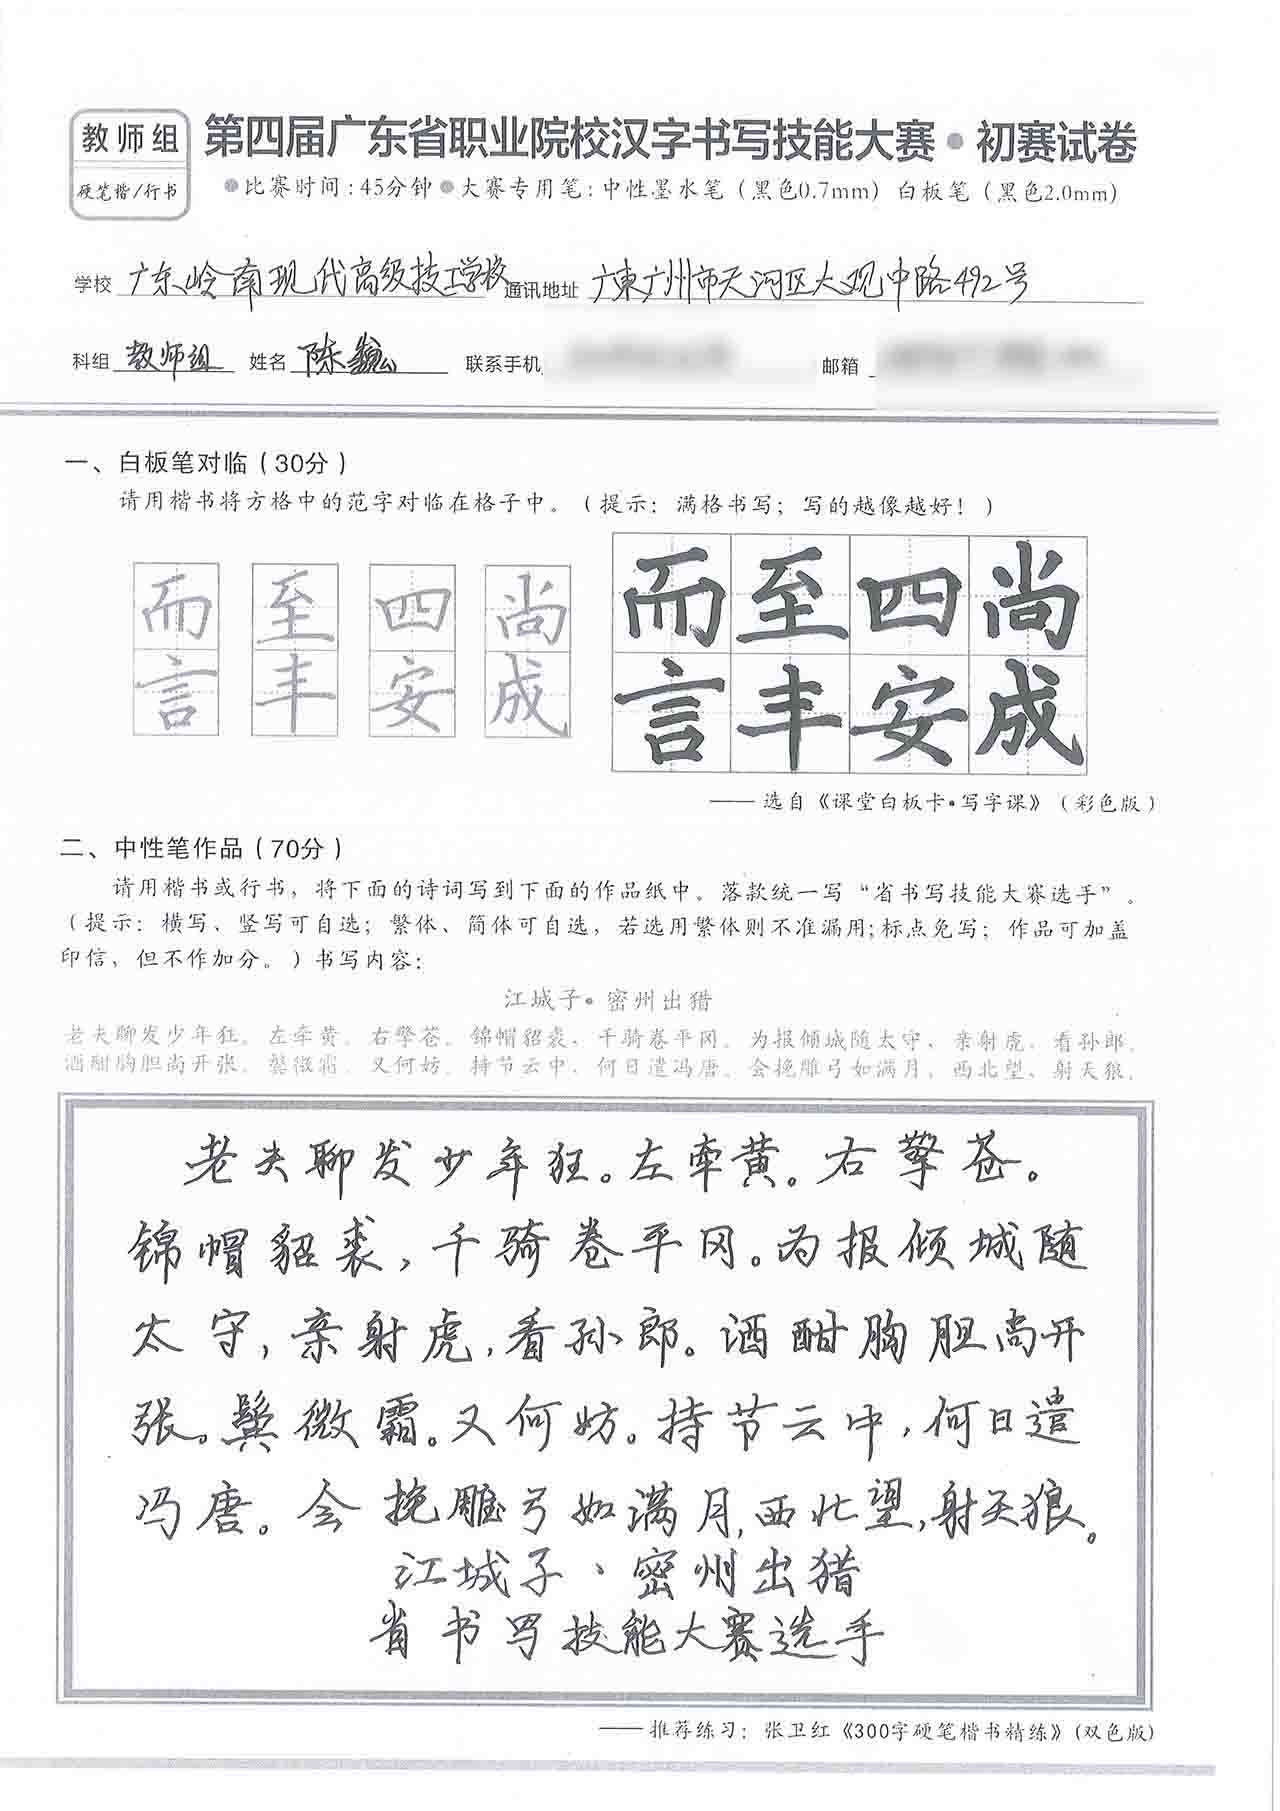 教师组
硬笔楷/行书
第四届广东省职业院校汉字书写技能大赛•初赛试卷
●比赛时间:45分钟●大赛专用笔:中性墨水笔（黑色0.7mm）白板笔（黑色2.0mm）
学校 广东岭南现代高级技工学校 通讯地址 广東广州市天河区大观中路492号
科组 教师组 姓名 陈巍 联系手机 邮箱
一、白板笔对临（30分）
请用楷书将方格中的范字对临在格子中。（提示：满格书写；写的越像越好！）
而 至 四 尚 而 至 四 尚
言 丰 安 成 言 丰 安 成
——选自《课堂白板卡•写字课》（彩色版）
二、中性笔作品（70分）
请用楷书或行书，将下面的诗词写到下面的作品纸中。落款统一写“省书写技能大赛选手”。
（提示：横写、竖写可自选；繁体、简体可自选，若选用繁体则不准漏用;标点免写；作品可加盖
印信，但不作加分。）书写内容：
江城子•密州出猎
老夫聊发少年狂。左牵黄。右擎苍。锦帽貂裘，千骑卷平冈。为报倾城随太守，亲射虎，看孙郎。
酒酣胸胆尚开张。鬓微霜。又何妨。持节云中，何日遣冯唐。会挽雕弓如满月，西北望，射天狼。
老夫聊发少年狂。左牵黄。右擎苍。
锦帽貂裘，千骑卷平冈。为报倾城随
太守，亲射虎，看孙郎。酒酣胸胆尚开
张。鬓微霜。又何妨。持节云中，何日遣
冯唐。会挽雕弓如满月，西北望，射天狼。
江城子、密州出猎
省书写技能大赛选手
——推荐练习：张卫红《300字硬笔楷书精练》(双色版)